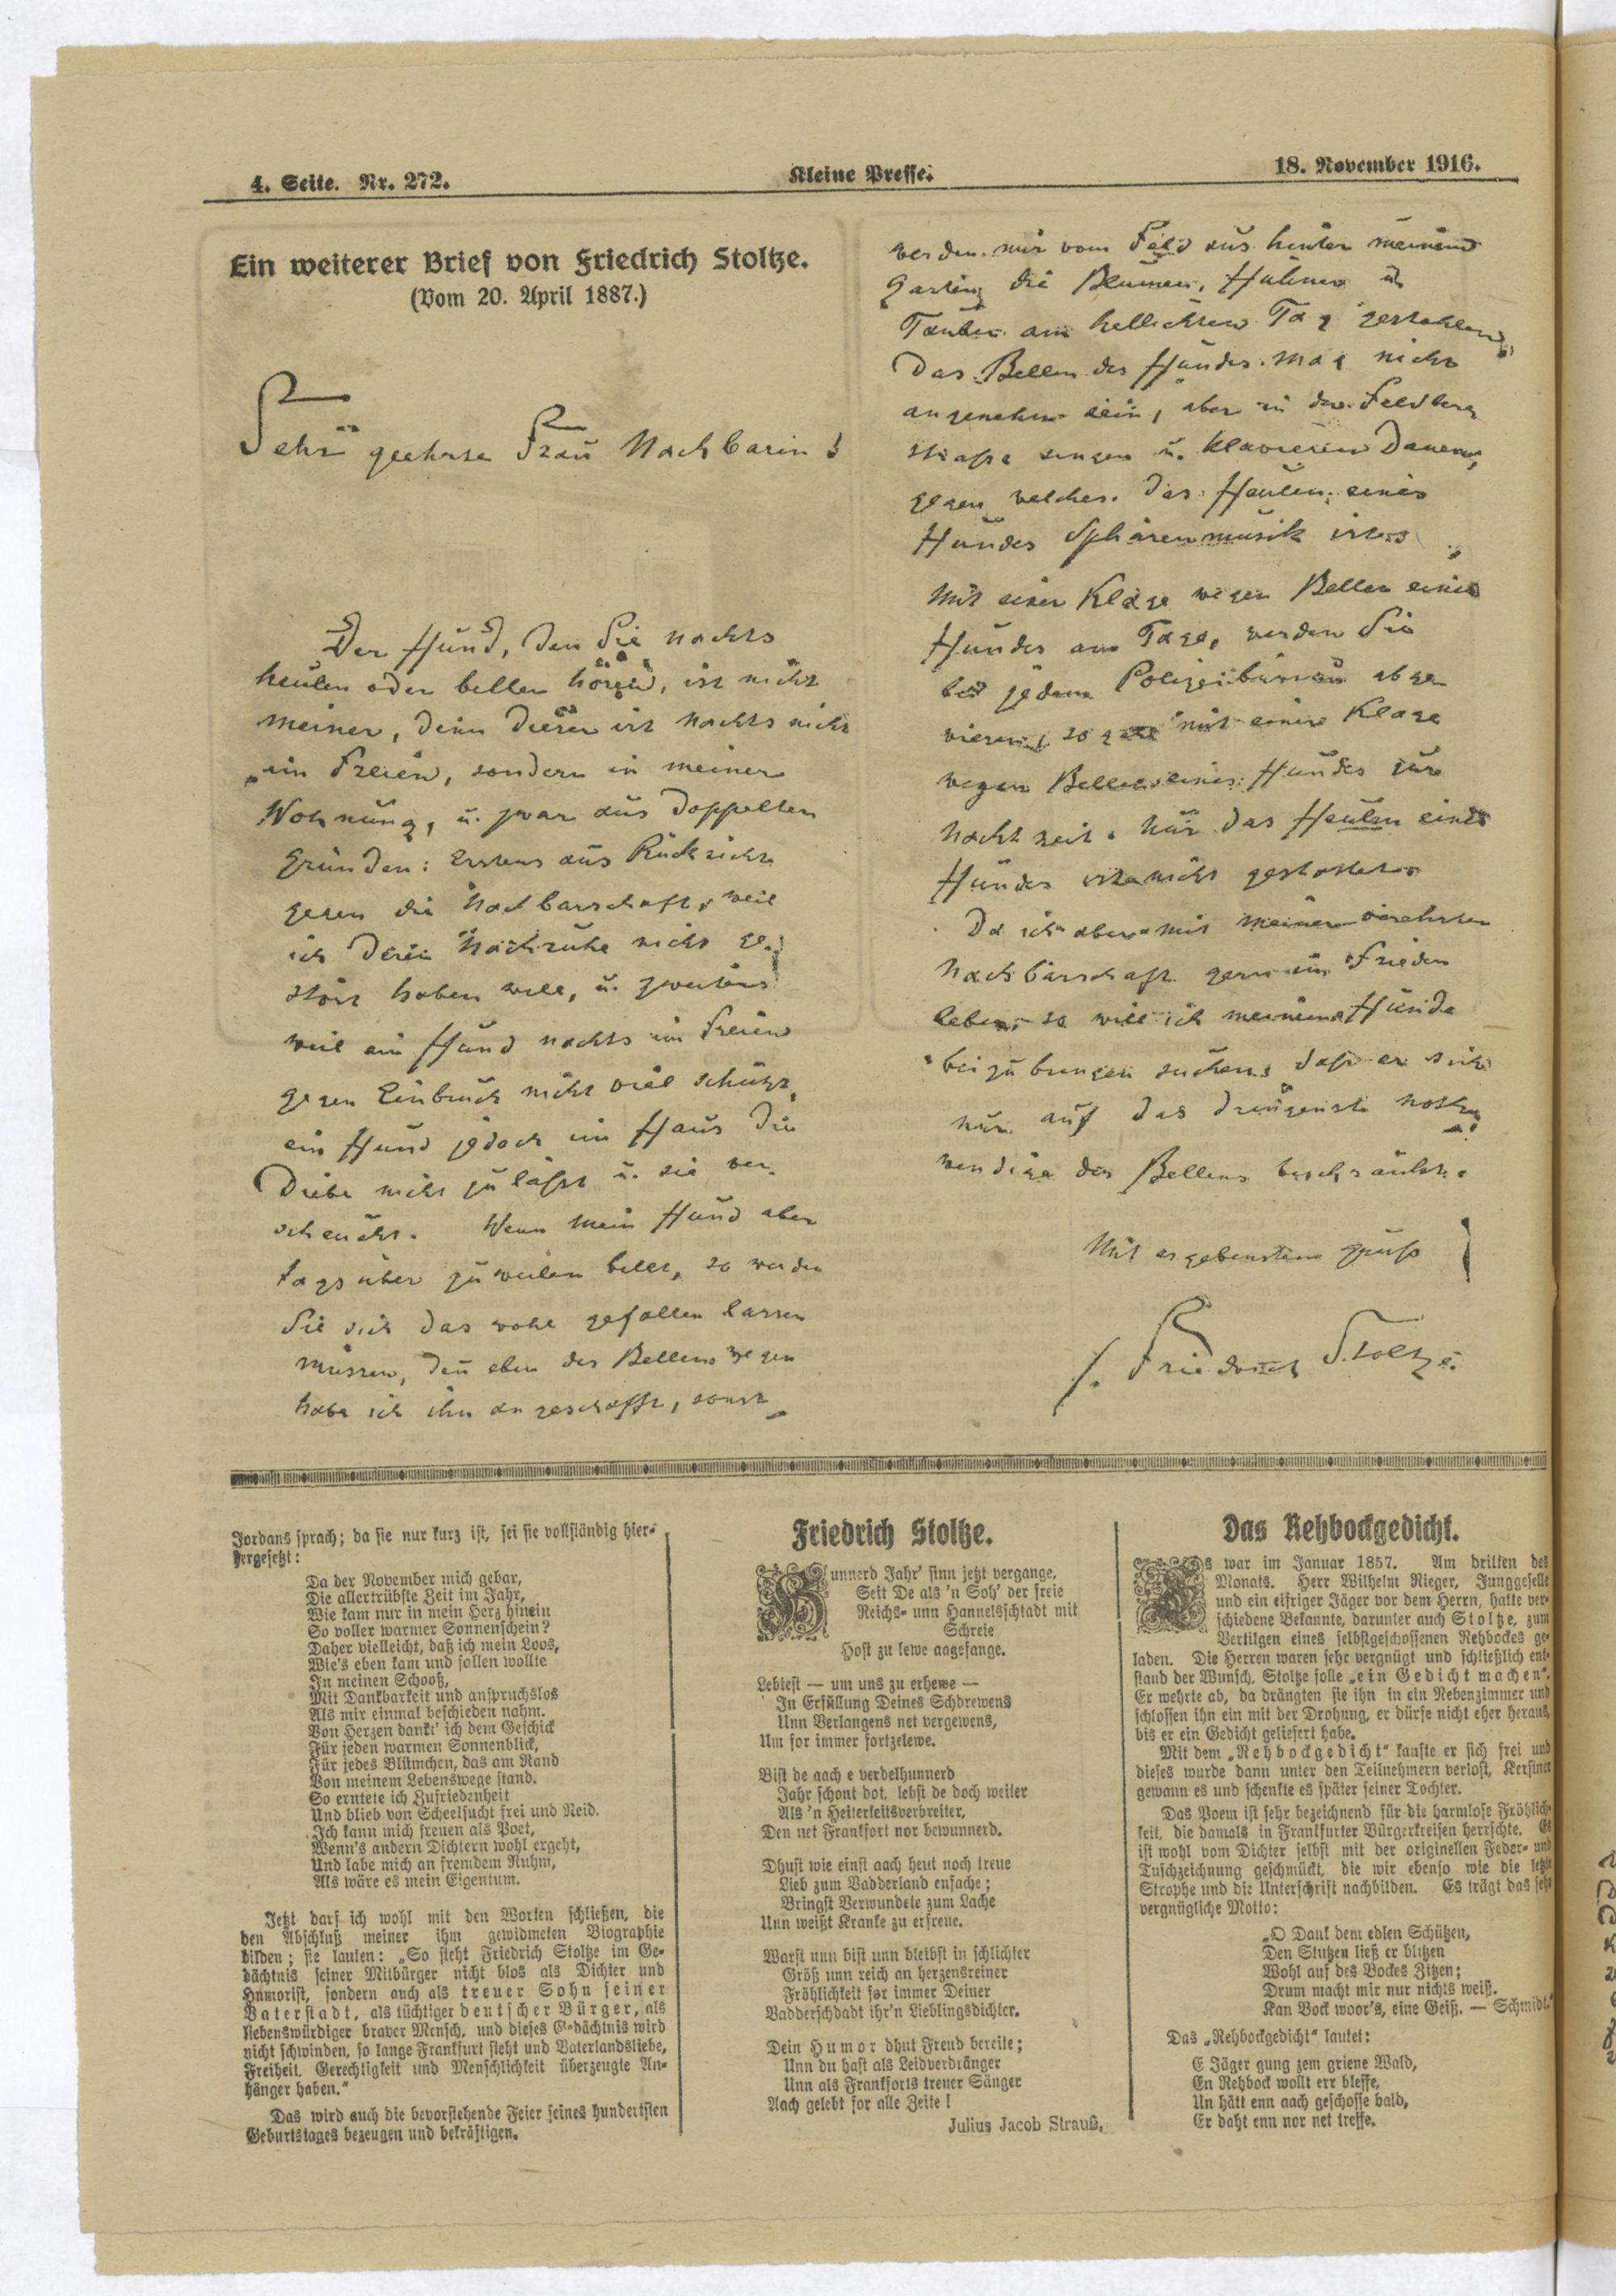 4. Seite. Nr. 272.
Kleine Presse.
18. November 1916.
Ein weiterer Brief von Friedrich Stoltze.
(Vom 20. April 1887.)
Sehr geehrte Frau Nachbarin!
Der Hund, den Sie nachts
heulen oder bellen hören, ist nicht
meiner, denn dieser ist nachts nicht
im Freien, sondern in meiner
Wohnung, u. zwar aus doppelten
Gründen: Erstens aus Rücksicht
gegen die Nachbarschaft, weil
ich deren Nachtruhe nicht ge-
stört haben will, u. zweitens
weil ein Hund nachts im Freien
gegen Einbruch nicht viel schützt,
ein Hund jedoch im Haus die
Diebe nicht zuläßt u. sie ver-
scheucht. Wenn mein Hund aber
tagsüber zuweilen bellt, so werden
Sie sich das wohl gefallen lassen
müssen, den̄ eben des Bellens wegen
habe ich ihn angeschafft, sonst
werden mir vom Feld aus hinter meinem
Garten die Blumen, Hühner u.
Tauben am hellichten Tag gestohlen.
Das Bellen des Hundes mag nicht
angenehm sein, aber in der Feldberg
straße singen u. klavieren Damen,
gegen welches das Heulen eines
Hundes Sphärenmusik ist.
Mit einer Klage wegen Bellen eines
Hundes am Tage, werden Sie
bei jedem Polizeibüreau abge
wiesen, so gar mit einer Klage
wegen Bellens eines Hundes zur
Nachtzeit. Nur das Heulen eines
Hundes ist nicht gestattet.
Da ich aber mit meiner verehrten
Nachbarschaft gern im Frieden
lebe, so will ich meinem Hunde
beizubringen suchen, daß er sich
nur auf das dringenste noth-
wendige des Bellens beschränkt.
Mit ergebenstem Gruß
Friedrich Stoltze.
Jordans sprach; da sie nur kurz ist, sei sie vollständig hier-
hergesetzt:
Da der November mich gebar,
Die allertrübste Zeit im Jahr,
Wie kam nur in mein Herz hinein
So voller warmer Sonnenschein?
Daher vielleicht, daß ich mein Loos,
Wie's eben kam und fallen wollte
In meinen Schooß,
Mit Dankbarkeit und anspruchslos
Als mir einmal beschieden nahm.
Von Herzen dankt' ich dem Geschick
Für jeden warmen Sonnenblick,
Für jedes Blümchen, das am Rand
Von meinem Lebenswege stand.
So erntete ich Zufriedenheit
Und blieb von Scheelsucht frei und Neid.
Ich kann mich freuen als Poet,
Wenn's andern Dichtern wohl ergeht,
Und labe mich an fremdem Ruhm,
Als wäre es mein Eigentum.
Jetzt darf ich wohl mit den Worten schließen, die
den Abschluß meiner ihm gewidmeten Biographie
bilden; sie lauten: „So steht Friedrich Stoltze im Ge-
dächtnis seiner Mitbürger nicht blos als Dichter und
Humorist, sondern auch als treuer Sohn seiner
Vaterstadt, als tüchtiger deutscher Bürger, als
liebenswürdiger braver Mensch, und dieses Gedächtnis wird
nicht schwinden, so lange Frankfurt steht und Vaterlandsliebe,
Freiheit, Gerechtigkeit und Menschlichkeit überzeugte An-
hänger haben.“
Das wird auch die bevorstehende Feier seines hundertsten
Geburtstages bezeugen und bekräftigen.
Friedrich Stoltze.
Hunnerd Jahr' sinn jetzt vergange,
Seit De als 'n Soh' der freie
Reichs- unn Hannelsschtadt mit
Schreie
Host zu lewe aagefange.
Lebtest — um uns zu erhewe —
In Erfüllung Deines Schdrewens
Unn Verlangens net vergewens,
Um for immer fortzelewe.
Bist de aach e verdelhunnerd
Jahr schont dot, lebst de doch weiter
Als 'n Heiterkeitsverbreiter,
Den net Frankfort nor bewunnerd.
Dhust wie einst aach heut noch treue
Lieb zum Vadderland enfache;
Bringst Verwundete zum Lache
Unn weißt Kranke zu erfreue.
Warst unn bist unn bleibst in schlichter
Größ unn reich an herzensreiner
Fröhlichkeit for immer Deiner
Vadderschdadt ihr'n Lieblingsdichter.
Dein Humor dhut Freud bereite;
Unn du hast als Leidverdränger
Unn als Frankforts treuer Sänger
Aach gelebt for alle Zeite!
Julius Jacob Strauß.
Das Rehbockgedicht.
Es war im Januar 1857. Am dritten des
Monats. Herr Wilhelm Rieger, Junggeselle
und ein eifriger Jäger vor dem Herrn, hatte ver-
schiedene Bekannte, darunter auch Stoltze, zum
Vertilgen eines selbstgeschossenen Rehbockes ge-
laden. Die Herren waren sehr vergnügt und schließlich ent-
stand der Wunsch, Stoltze solle „ein Gedicht machen“.
Er wehrte ab, da drängten sie ihn in ein Nebenzimmer und
schlossen ihn ein mit der Drohung, er dürfe nicht eher heraus,
bis er ein Gedicht geliefert habe.
Mit dem „Rehbockgedicht“ kaufte er sich frei und
dieses wurde dann unter den Teilnehmern verlost, Kersiner
gewann es und schenkte es später seiner Tochter.
Das Poem ist sehr bezeichnend für die harmlose Fröhlich-
keit, die damals in Frankfurter Bürgerkreisen herrschte. Es
ist wohl vom Dichter selbst mit der originellen Feder- und
Tuschzeichnung geschmückt, die wir ebenso wie die letzte
Strophe und die Unterschrift nachbilden. Es trägt das sehr
vergnügliche Motto:
„O Dank dem edlen Schützen,
Den Stutzen ließ er blitzen
Wohl auf des Bockes Zitzen;
Drum macht mir nur nichts weiß.
Kan Bock woor's, eine Geiß. — Schmidt.“
Das „Rehbockgedicht“ lautet:
E Jäger gung zem griene Wald,
En Rehbock wollt err blesse,
Un hätt enn aach geschosse bald,
Er daht enn nor net treffe.